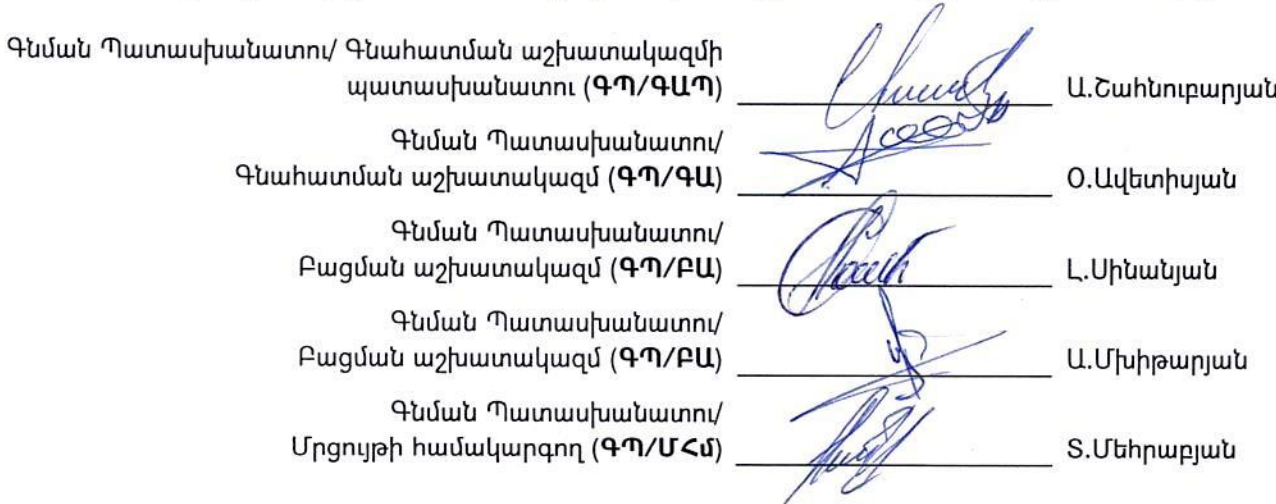 Գնման Պատասխանատու/ Գնահատման աշխատակազմի
պատասխանատու (ԳՊ/ԳԱՊ) Ա.Շահնուբարյան
Գնման Պատասխանատու/
Գնահատման աշխատակազմ (ԳՊ/ԳԱ) Օ.Ավետիսյան
Գնման Պատասխանատու/
Բացման աշխատակազմ (ԳՊ/ԲԱ) Լ.Սինանյան
Գնման Պատասխանատու/
Բացման աշխատակազմ (ԳՊ/ԲԱ) Ա.Մխիթարյան
Գնման Պատասխանատու/
Մրցույթի համակարգող (ԳՊ/ՄՀմ) Տ.Մեհրաբյան